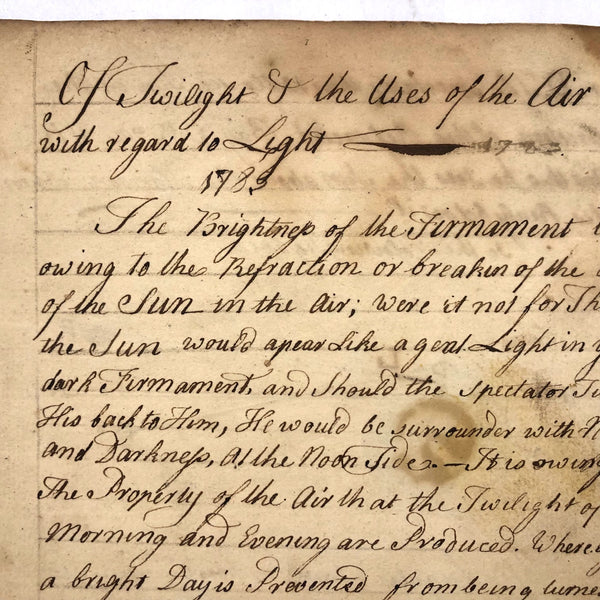 Of Twilight & the Uses of the Air
with regard to Light
1783
The Brightness of the Firmament
owing to the Refraction or breakin of the
of the Sun in the Air; were it not for Th
the Sun would apear Like a great Light in
dark Firmament, and Should the Spectator Tu
His back to Him, He would be surrounder with N
and Darkness, At the Noon Tide. – It is owing
The Property of the Air that the Twilight of
Morning and Evening are Produced. Where
a bright Day is Prevented from being turne